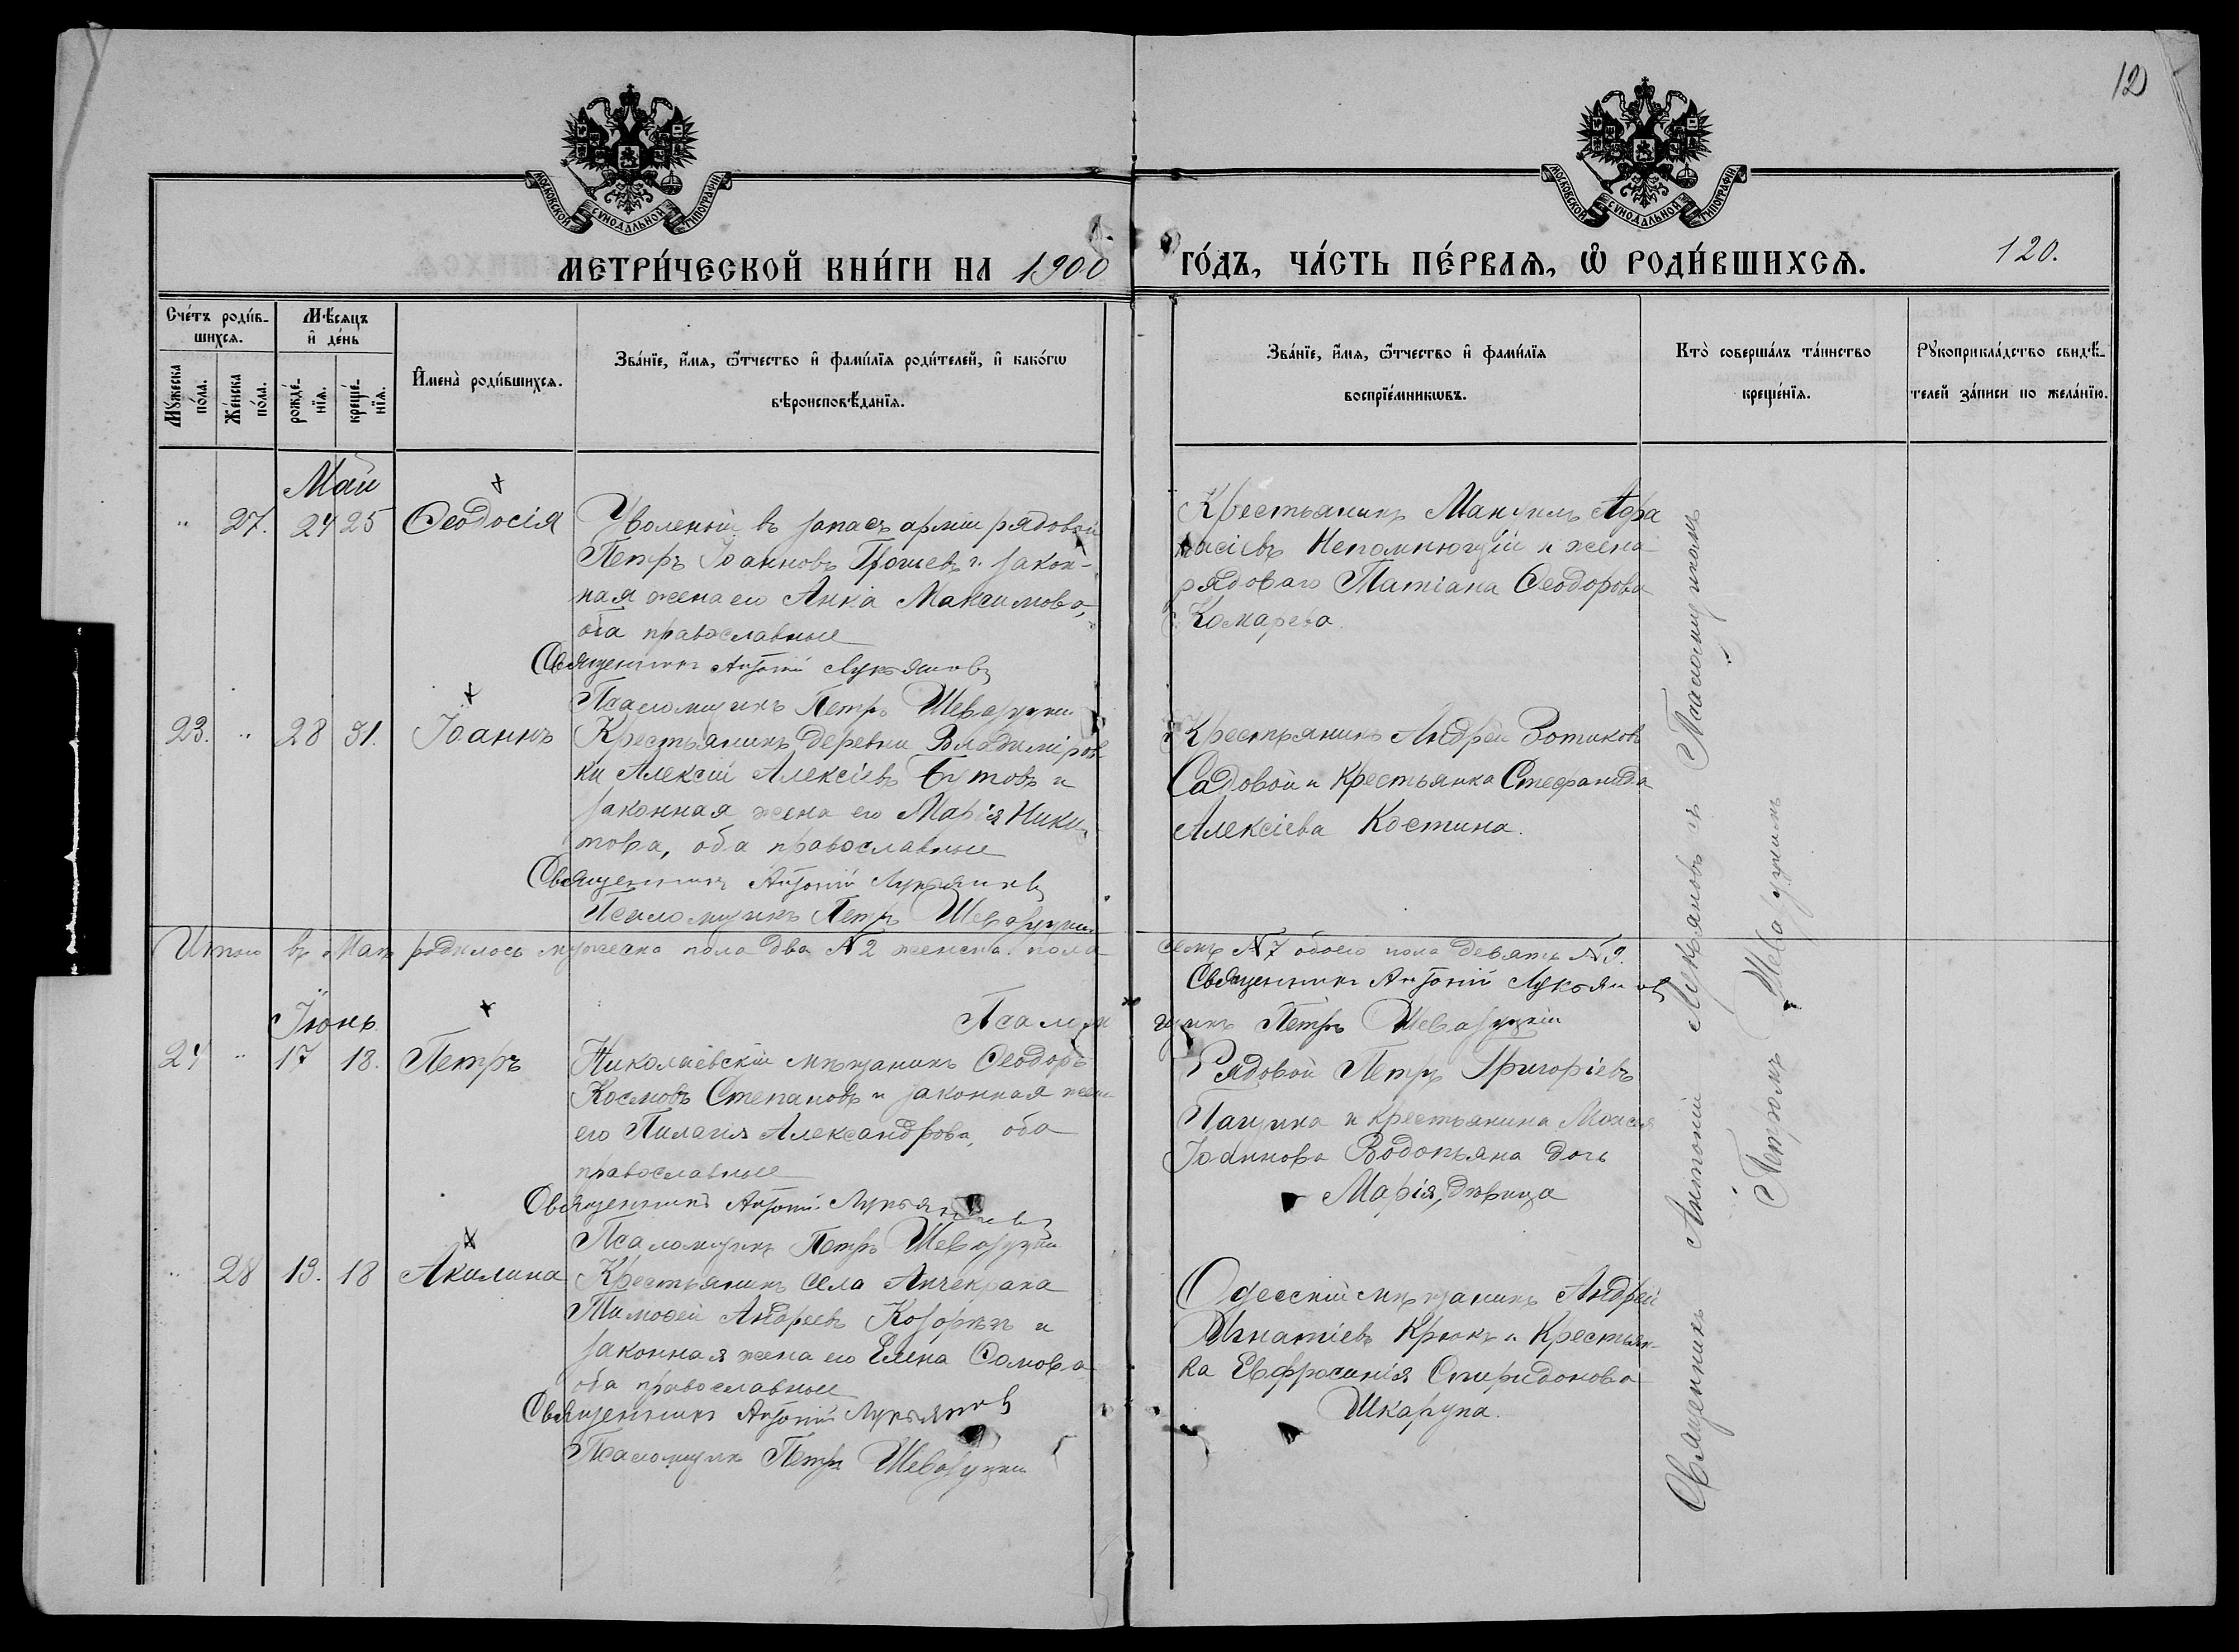 12
МОСКОВСКОЙ СѴНОДАЛЬНОЙ ТИПОГРАФІИ
МОСКОВСКОЙ СѴНОДАЛЬНОЙ ТИПОГРАФІИ
МЕТРИ́ЧЕСКОЙ КНИ́ГИ НА 1900 ГО́ДЪ, ЧА́СТЬ ПЕ́РВАѦ, Ѡ РОДИ́ВШИХСѦ.
120.
Сче́тъ роди́в-
шихсѧ.
Мꙋ́жеска по́ла.
Же́нска по́ла.
Мѣ́сѧцъ и де́нь
рожде́-
нїѧ.
креще́-
нїѧ.
И̓мена̀ роди́вшихсѧ.
Зва́нїе, и́мѧ, ѻ́тчество и фами́лїѧ роди́телей, и како́гѡ
вѣроисповѣ́данїѧ.
Зва́нїе, и́мѧ, ѻ́тчество и фами́лїѧ
воспрїе́мникѡвъ.
Кто̀ соверша́лъ та́инство
креще́нїѧ.
Рꙋкоприкла́дство свидѣ́-
телей за́писи по жела́нїю.
Май
" 27. 24 25 Ѳеодосія
Уволеный въ запасъ арміи рядовой
Петръ Іоанновъ и закон-
ная жена его Анна Максимова,
оба православные
Священникъ Антоній Лукьяновъ
Псаломщикъ Петръ
Крестьянинъ Мануилъ Афа
насіевъ Непомнющій и жена
рядоваго Татіана Ѳеодорова
Комарева
23. " 28 31. Іоаннъ
Крестьянинъ деревни Владиміров
ки Алексій Алексіевъ Бутовъ и
законная жена его Марія Ники
това, оба православные
Священникъ Антоній Лукьяновъ
Псаломщикъ Петръ
Крестьянинъ Андрей Зотиковъ
Садовой и крестьянка Стефанида
Алексіева Костина.
Итого въ Маѣ родилось мужеска пола два №2 женска пола
семь №7 обоего пола девять №9.
Священникъ Антоній Лукьяновъ
Псалом
щикъ Петръ
Іюнь
24 " 17 18. Петръ
Николаевскій мѣщанинъ Ѳеодоръ
Космовъ Степановъ и законная жена
его Пилагія Александрова, оба
православные
Священникъ Антоній Лукьяновъ
Псаломщикъ Петръ
Рядовой Петръ Григоріевъ
и крестьянина Моисея
Іоаннова Водопьяна дочь
Марія, дѣвица
" 28 13. 18 Акилина
Крестьянинъ села Анчекрака
Тимоѳей Андреевъ и
законная жена его Елена Сомова
оба православные
Священникъ Антоній Лукьяновъ
Псаломщикъ Петръ
Одесскій мѣщанинъ Андрей
Игнатіевъ Крюкъ и Крестьян-
ка Евфросинія Спиридонова
Шкарупа.
Священникъ Антоній Лукьяновъ съ Псаломщикомъ
Петромъ